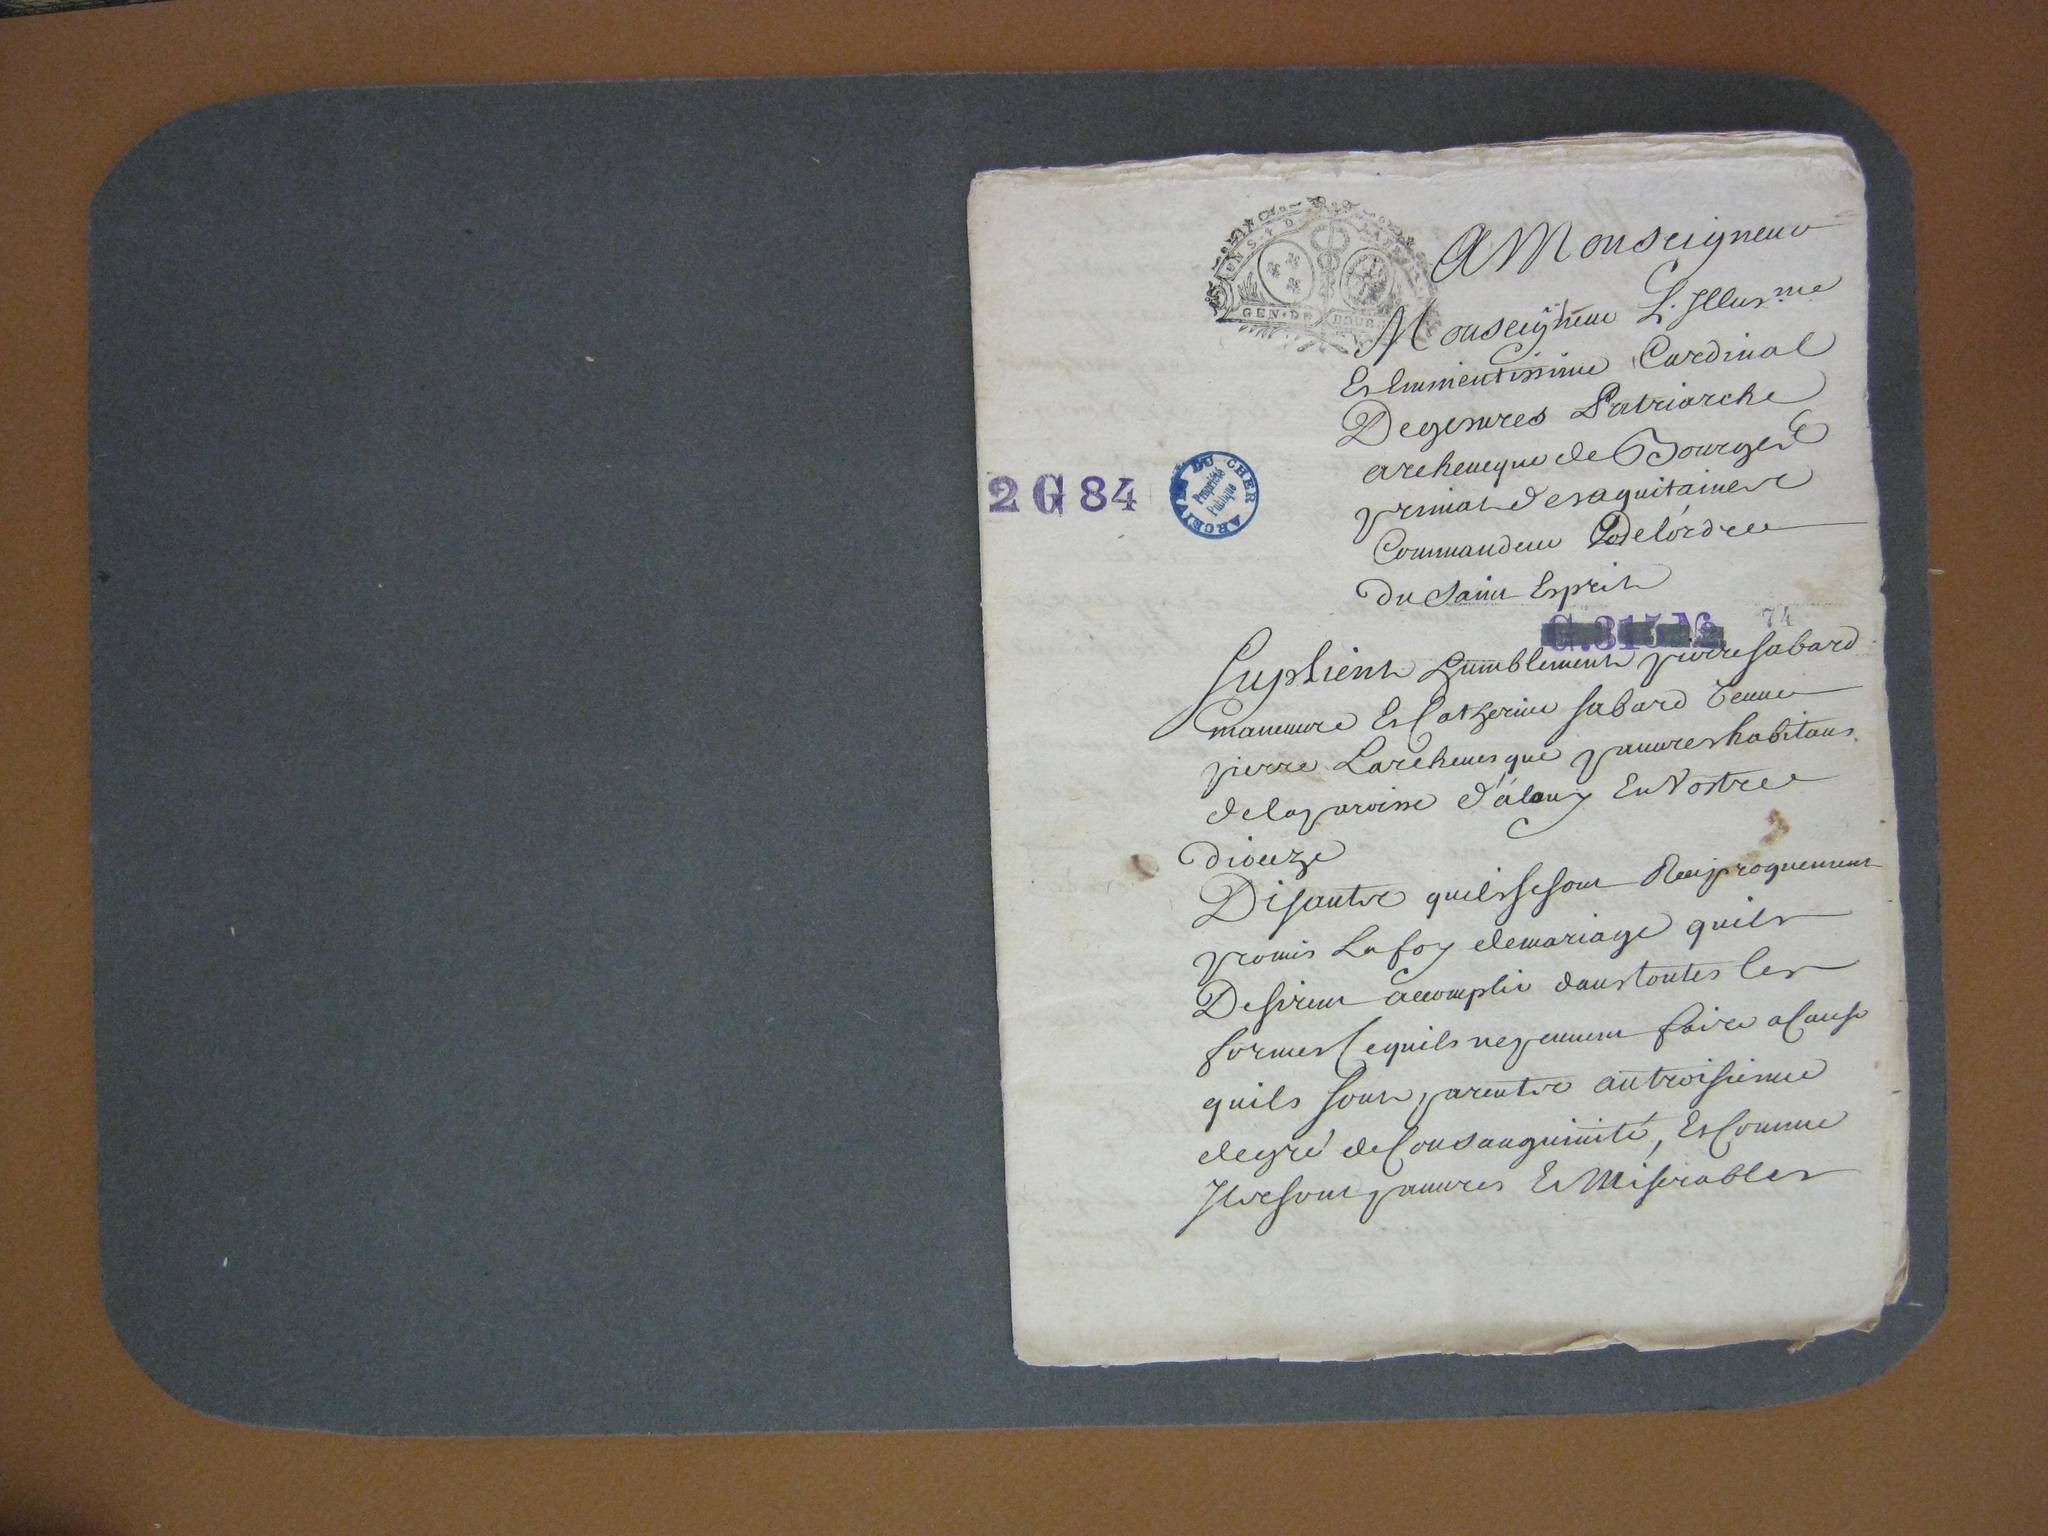 A Monseigneur
Monseigneur L. Illus.me
Et Eminentissime Cardinal
De gesvres Patriarche
archeveque de Bourges
primat des aquitaines
Commandeur De l'ordre
du Saint Esprit
2 G 84
ARCHIVES DU CHER
Propriété
Publique
GEN. DE BOUR
G. 315 No 74
Suplient humblement pierre sabard
maneuvre Et Catherine sabard veuve
pierre Larchevesque pauvres habitans
de la paroisse d'alouy En Vostre
diocze
Disants quils se sont Reciproquement
promis La foy de mariage quils
Desirent accomplir dans toutes les
formes Ce quils ne peuvent faire a Cause
quils sont parents au troisieme
degré de Consanguinité, Et Comme
Ils sont pauvres Et Miserables